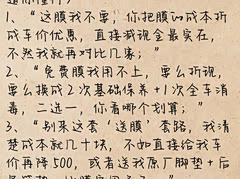 1、“这膜我不要，你把膜的成本折
成车价优惠，直接减现金最实在，
不然我就再对比几家；”
2、“免费膜我用不上，要么折现，
要么换成2次基础保养+1次全车消
毒，二选一，你看哪个划算；”
3、“别来这套‘送膜’套路，我清
楚成本就几十块，不如直接给我车
价再降500，或者送我原厂脚垫+后